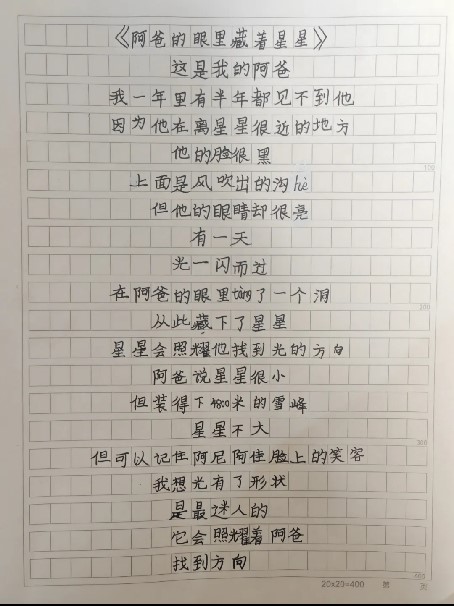 《阿爸的眼里藏着星星》
这是我的阿爸
我一年里有半年都见不到他
因为他在离星星很近的地方
他的脸很黑
上面是风吹出的沟hè
但他的眼睛却很亮
有一天
光一闪而过
在阿爸的眼里tàng了一个洞
从此藏下了星星
星星会照耀他找到光的方向
阿爸说星星很小
但装得下4800米的雪峰
星星不大
但可以记住阿尼阿佳脸上的笑容
我想光有了形状
是最迷人的
它会照耀着阿爸
找到方向
20x20=400